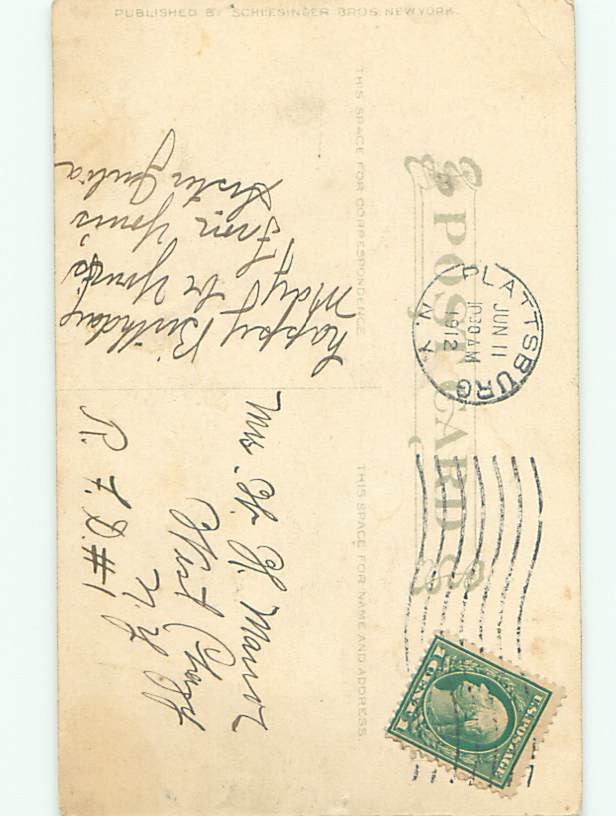 PUBLISHED BY SCHLESINGER BROS. NEW YORK
POST CARD
THIS SPACE FOR CORRESPONDENCE
THIS SPACE FOR NAME AND ADDRESS.
PLATTSBURG
JUN 11
1030 AM
1912
N.Y.
U.S. POSTAGE
1 CENT 1
May
happy be Yours
Birthday From Yours
Sister Julia
Mrs. H. H. Manor
West Chazy
N.Y
R. F. D. #1